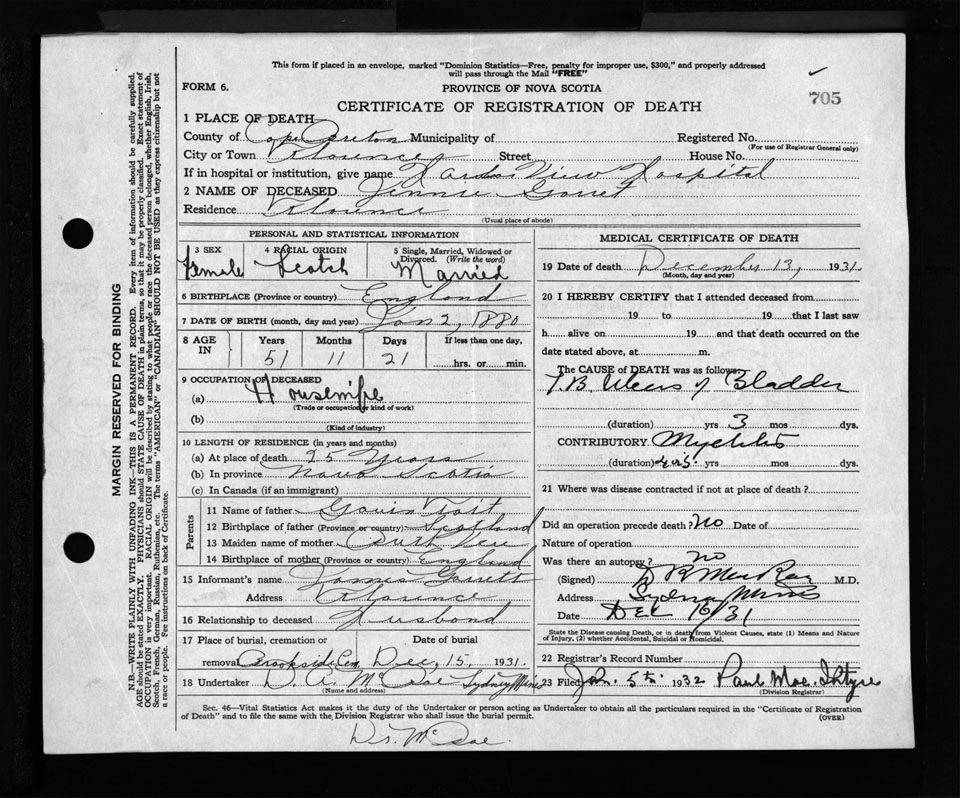 This form if placed in an envelope, marked "Dominion Statistics—Free, penalty for improper use, $300," and properly addressed
will pass through the Mail "FREE"
FORM 6.
PROVINCE OF NOVA SCOTIA
705
CERTIFICATE OF REGISTRATION OF DEATH
1 PLACE OF DEATH
County of Cape Breton Municipality of Registered No.
(For use of Registrar General only)
City or Town Florence Street House No.
If in hospital or institution, give name Harbor View Hospital
2 NAME OF DECEASED Jennie
Residence Florence
(Usual place of abode)
PERSONAL AND STATISTICAL INFORMATION
3 SEX Female
4 RACIAL ORIGIN Scotch
5 Single, Married, Widowed or Divorced. (Write the word) Married
6 BIRTHPLACE (Province or country) England
7 DATE OF BIRTH (month, day and year) Jan 2, 1880
8 AGE IN Years Months Days If less than one day,
51 11 21 hrs. or min.
9 OCCUPATION OF DECEASED
(a) Housewife
(Trade or occupation or kind of work)
(b)
(Kind of industry)
10 LENGTH OF RESIDENCE (in years and months)
(a) At place of death 25 Years
(b) In province Nova Scotia
(c) In Canada (if an immigrant)
Parents
11 Name of father
12 Birthplace of father (Province or country) Scotland
13 Maiden name of mother Ruth
14 Birthplace of mother (Province or country) England
15 Informant's name James
Address Florence
16 Relationship to deceased Husband
17 Place of burial, cremation or removal Brookside Cem. Date of burial Dec. 15, 1931.
18 Undertaker D. A. Sydney Mines
(Name and address)
MEDICAL CERTIFICATE OF DEATH
19 Date of death December 13, 1931.
(Month, day and year)
20 I HEREBY CERTIFY that I attended deceased from
19 to 19 that I last saw
h alive on 19 and that death occurred on the
date stated above, at m.
The CAUSE of DEATH was as follows:
T.B. Ulcers of Bladder
(duration) yrs 3 mos dys.
CONTRIBUTORY
(duration) yrs mos dys.
21 Where was disease contracted if not at place of death?
Did an operation precede death? No Date of
Nature of operation
Was there an autopsy? no
(Signed) M.D.
Address Sydney Mines
Date Dec 16/31
State the Disease causing Death, or in death from Violent Causes, state (1) Means and Nature
of Injury, (2) whether Accidental, Suicidal or Homicidal.
22 Registrar's Record Number
23 Filed Jan. 5th 1932 Paul
(Division Registrar)
Sec. 46—Vital Statistics Act makes it the duty of the Undertaker or person acting as Undertaker to obtain all the particulars required in the "Certificate of Registration
of Death" and to file the same with the Division Registrar who shall issue the burial permit.
(OVER)
MARGIN RESERVED FOR BINDING
N.B.—WRITE PLAINLY WITH UNFADING INK—THIS IS A PERMANENT RECORD. Every item of information should be carefully supplied.
AGE should be stated EXACTLY. PHYSICIANS should STATE CAUSE OF DEATH in plain terms, so that it may be properly classified. Exact statement of
OCCUPATION is very important. RACIAL ORIGIN will be described by stating to what people or race the deceased person belonged, whether English, Irish,
Scotch, French, German, Russian, Ruthenian, etc. The terms "AMERICAN" or "CANADIAN" SHOULD NOT BE USED as they express citizenship but not
a race or people. See instructions on back of Certificate.